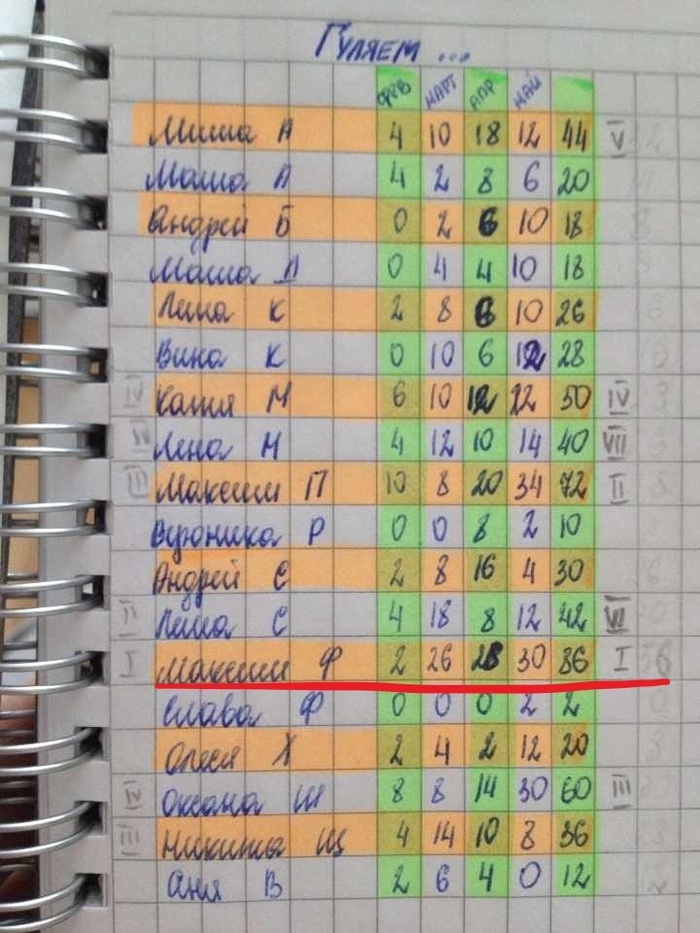 Гуляем ...
фев март апр май
Миша А 4 10 18 12 44 V
Маша А 4 2 8 6 20
Андрей Б 0 2 6 10 18
Маша Д 0 4 4 10 18
Лина К 2 8 6 10 26
Вика К 0 10 6 12 28
IV Катя М 6 10 12 22 50 IV
Лена М 4 12 10 14 40 VII
III Максим П 10 8 20 34 72 II
Вероника Р 0 0 8 2 10
Андрей С 2 8 16 4 30
II Лиша С 4 18 8 12 42 VI
I Максим Ф 2 26 28 30 86 I
Слава Ф 0 0 0 2 2
Олеся Х 2 4 2 12 20
IV Оксана Ш 8 8 14 30 60 III
III Никита Щ 4 14 10 8 36
Аня В 2 6 4 0 12